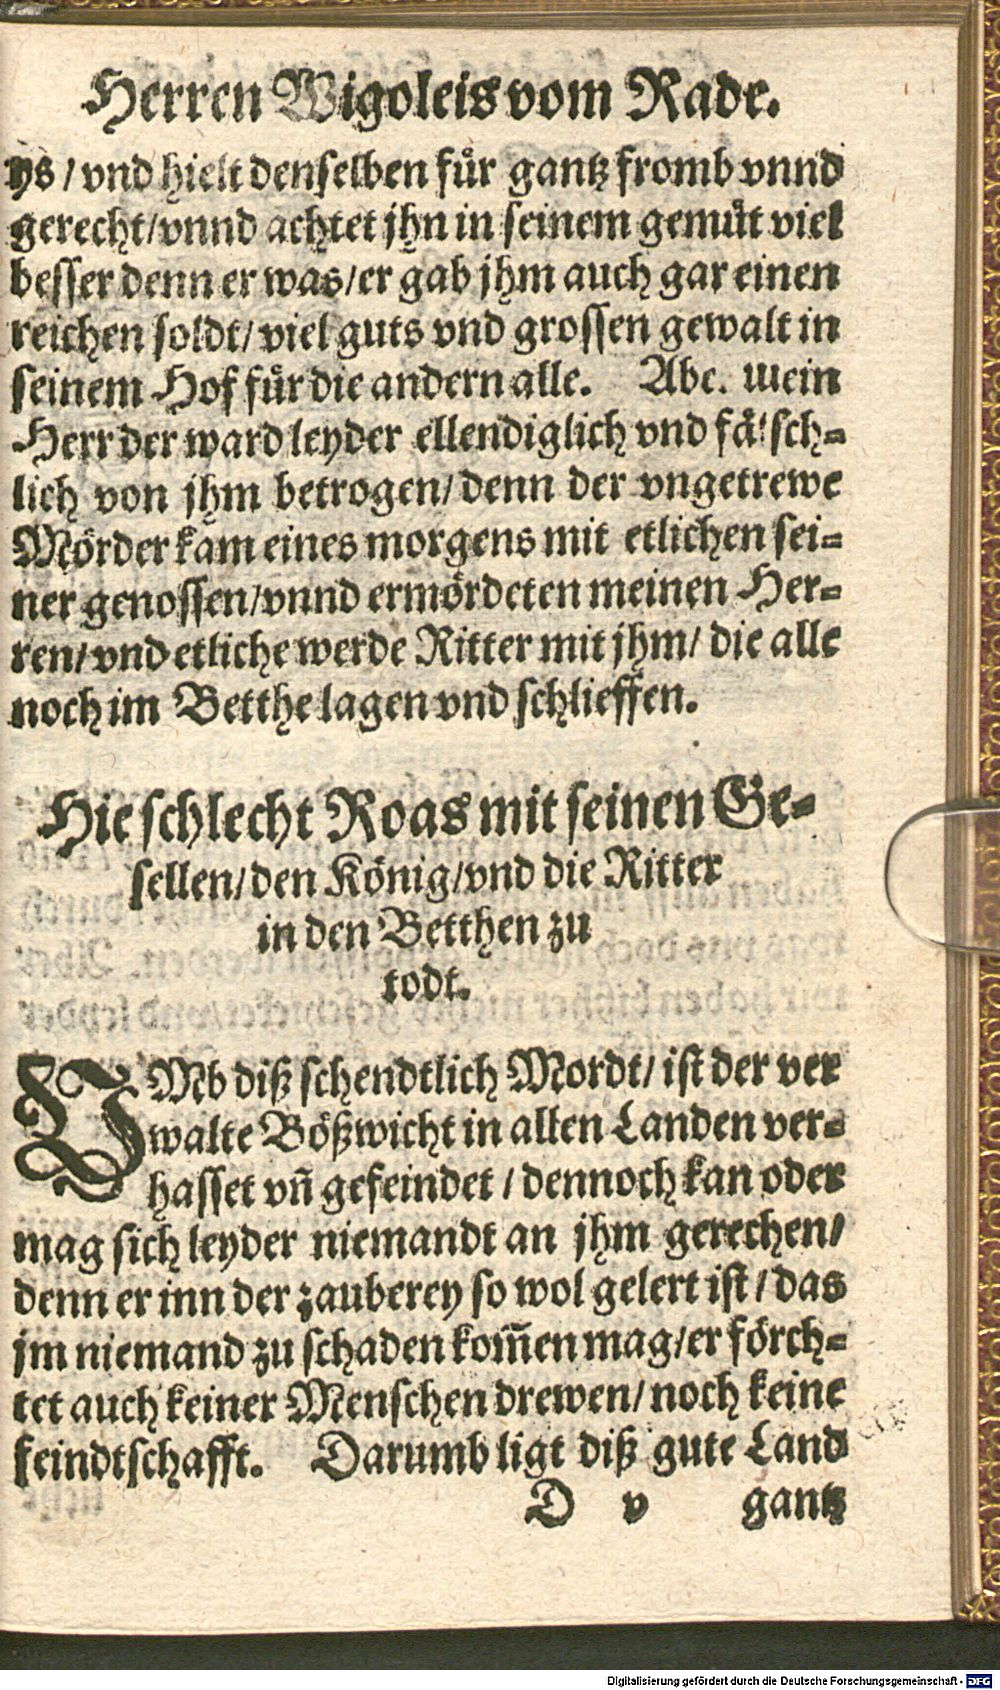 Herren Wigoleis vom Rade.
ys / vnd hielt denselben fuͤr gantz fromb vnnd
gerecht/vnnd achtet jhn in seinem gemuͤt viel
besser denn er was/er gab jhm auch gar einen
reichen soldt/ viel guts vnd grossen gewalt in
seinem Hof fuͤr die andern alle. Abe. mein
Herr der ward leyder ellendiglich vnd faͤlsch-
lich von jhm betrogen/ denn der vngetrewe
Moͤrder kam eines morgens mit etlichen sei-
ner genossen/vnnd ermoͤrdeten meinen Her-
ren/ vnd etliche werde Ritter mit jhm/ die alle
noch im Betthe lagen vnd schlieffen.
Hie schlecht Roas mit seinen Ge-
sellen/den Koͤnig/vnd die Ritter
in den Betthen zu
todt.
VMb diß schendtlich Mordt/ ist der ver
walte Boͤßwicht in allen Landen ver-
hasset vñ gefeindet / dennoch kan oder
mag sich leyder niemandt an jhm gerechen/
denn er inn der zauberey so wol gelert ist / das
jm niemand zu schaden kom̃en mag/er foͤrch-
tet auch keiner Menschen drewen/ noch keine
feindtschafft. Darumb ligt diß gute Land
D v gantz
Digitalisierung gefördert durch die Deutsche Forschungsgemeinschaft - DFG